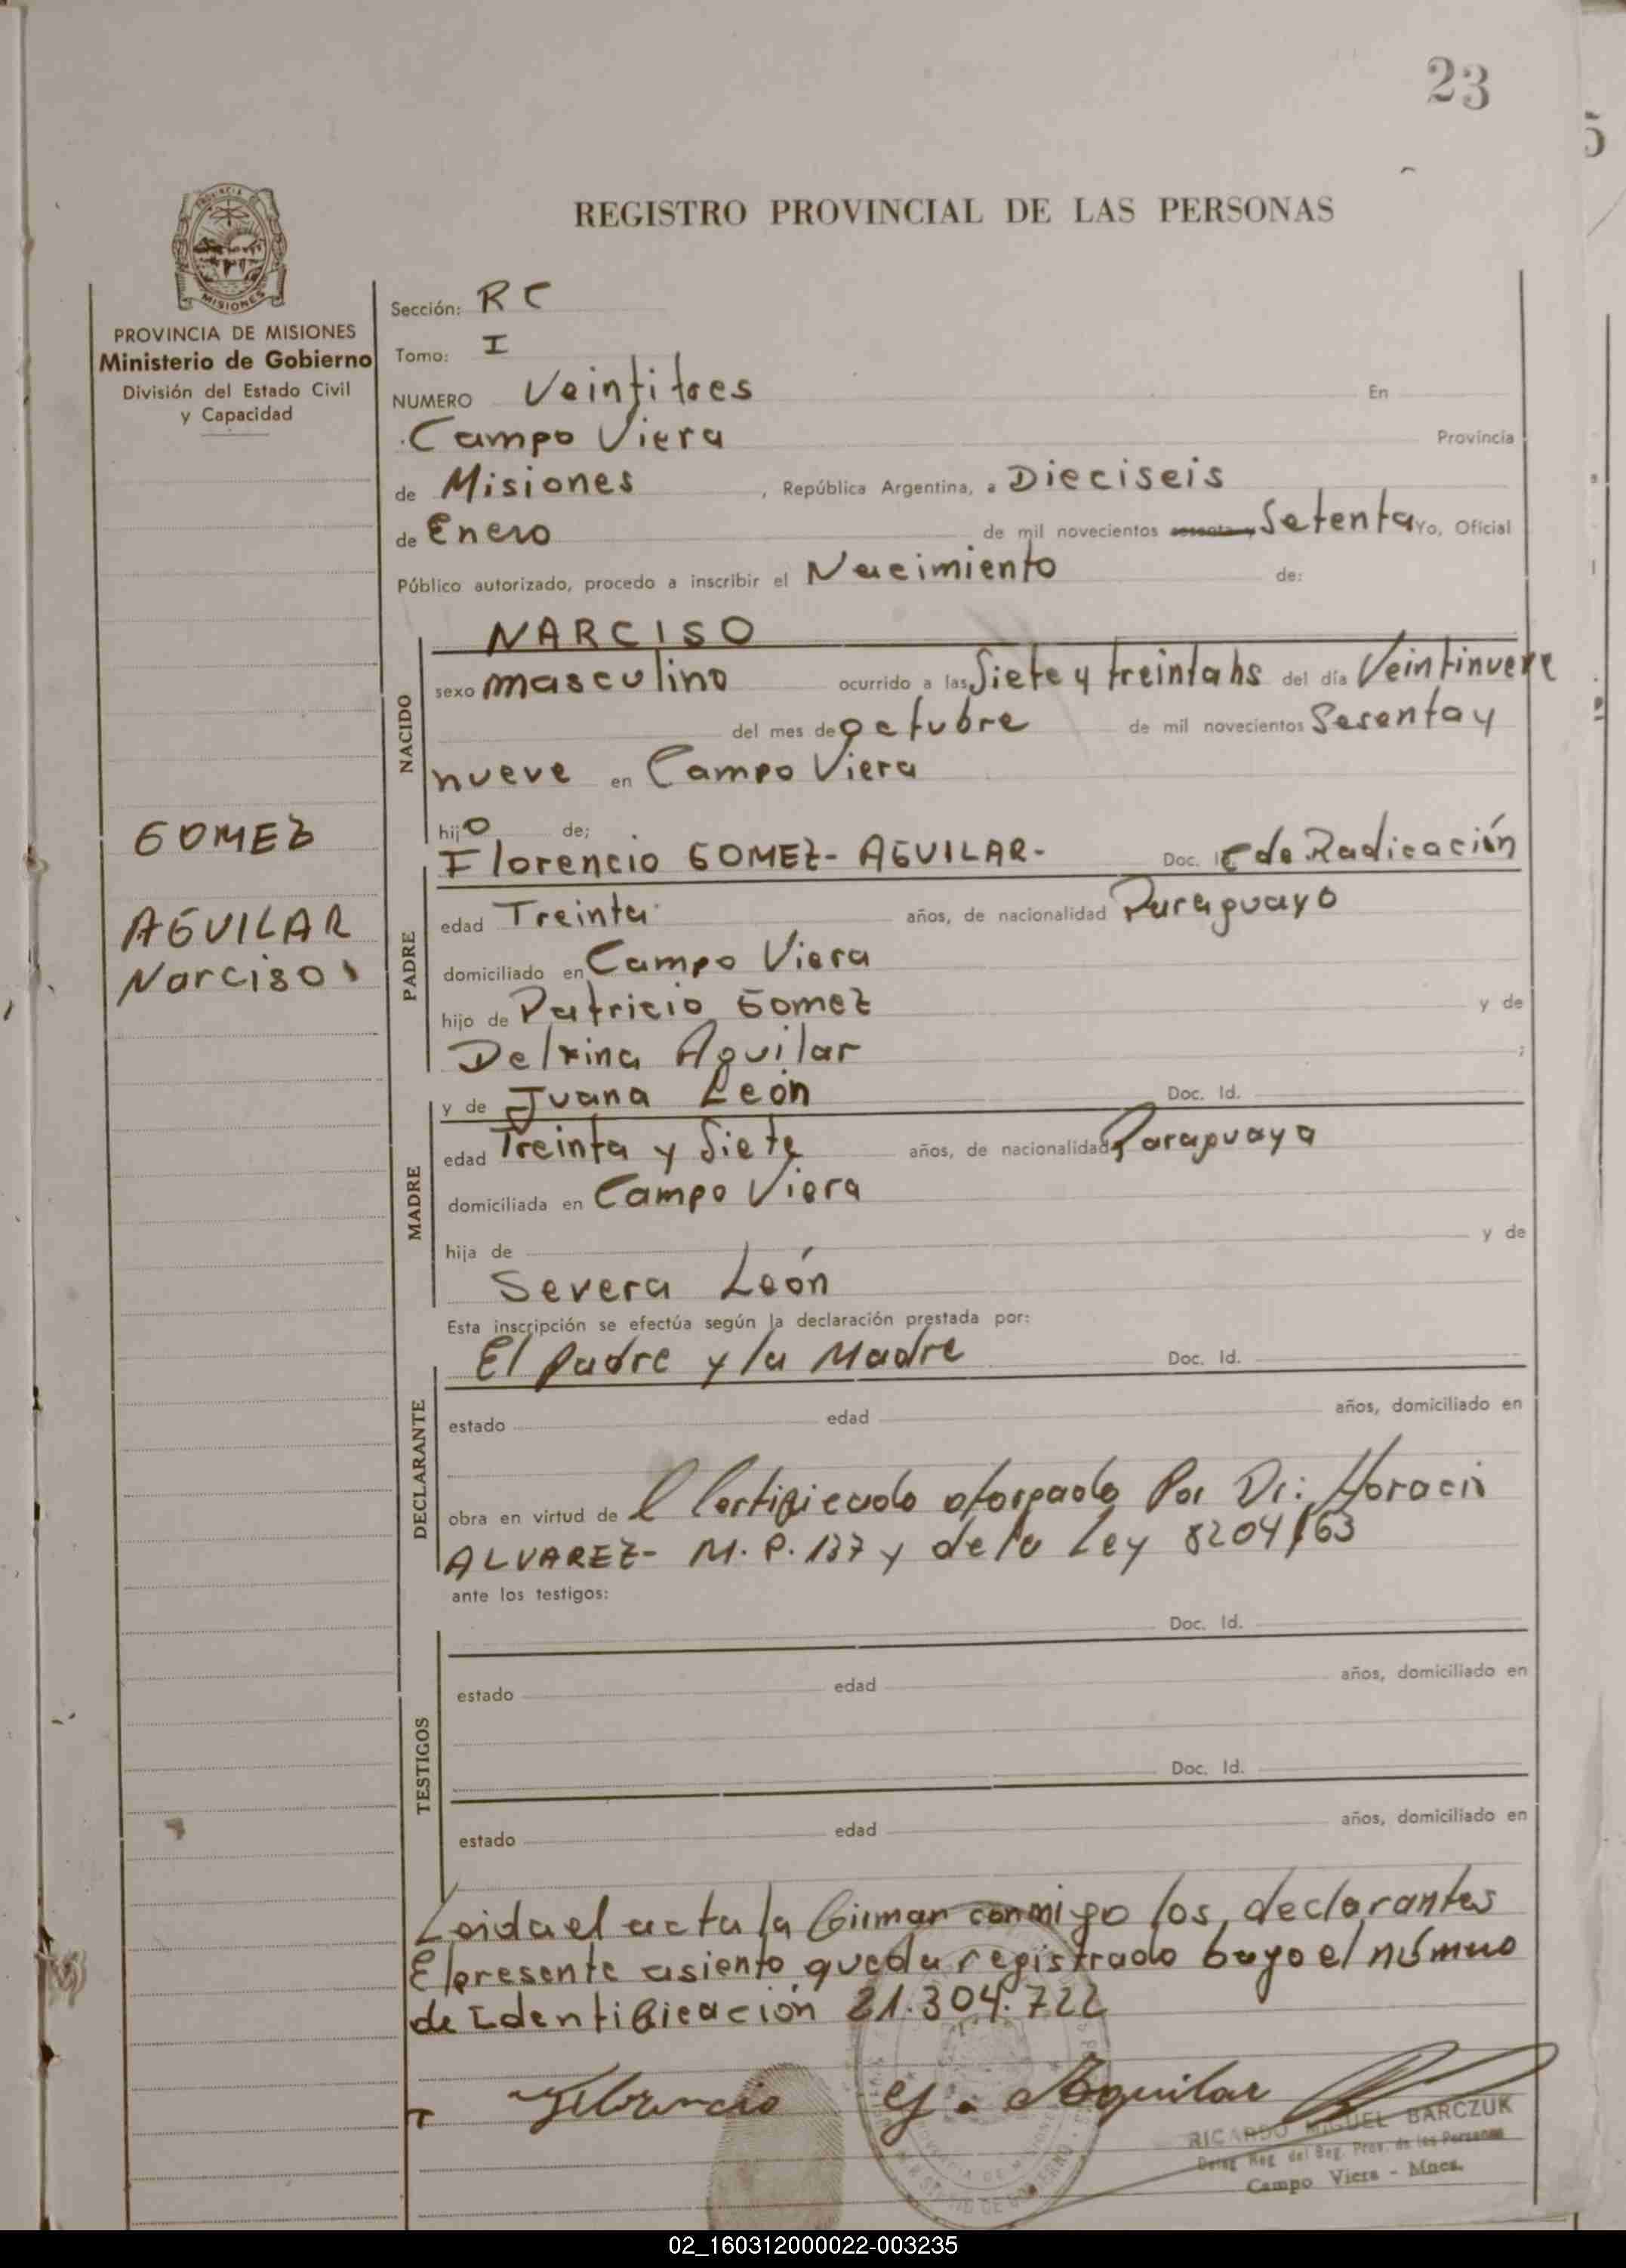 23
5
REGISTRO PROVINCIAL DE LAS PERSONAS
PROVINCIA
MISIONES
PROVINCIA DE MISIONES
Ministerio de Gobierno
División del Estado Civil
y Capacidad
Sección: RC
Tomo: I
NUMERO Veintitres En
Campo Viera Provincia
de Misiones, República Argentina, a Dieciseis
de Enero de mil novecientos sesenta y Setenta Yo, Oficial
Público autorizado, procedo a inscribir el Nacimiento de:
NARCISO
NACIDO
sexo masculino ocurrido a las Siete y treinta hs del día Veintinueve
del mes de octubre de mil novecientos Sesenta y
nueve en Campo Viera
hijo de;
GOMEZ
AGUILAR
Narciso
PADRE
Florencio GOMEZ- AGUILAR- Doc. C de Radicación
edad Treinta años, de nacionalidad Paraguayo
domiciliado en Campo Viera
hijo de Patricio Gomez y de
Delfina Aguilar ;
MADRE
y de Juana León Doc. Id.
edad Treinta y Siete años, de nacionalidad Paraguaya
domiciliada en Campo Viera
hija de y de
Severa León
Esta inscripción se efectúa según la declaración prestada por:
DECLARANTE
El Padre y la Madre Doc. Id.
estado edad años, domiciliado en
obra en virtud de l Certificado otorgado Por Dr: Horacio
ALVAREZ- M.P. 137 y de la Ley 8204/63
ante los testigos:
TESTIGOS
Doc. Id.
estado edad años, domiciliado en
Doc. Id.
estado edad años, domiciliado en
Leida el acta la firman conmigo los declarantes
El presente asiento queda registrado bajo el número
de Identificación 21.304.722
Florencio G. Aguilar
RICARDO MIGUEL BARCZUK
Deleg. Reg. del Reg. Prov. de las Personas
Campo Viera - Mnes.
02_160312000022-003235